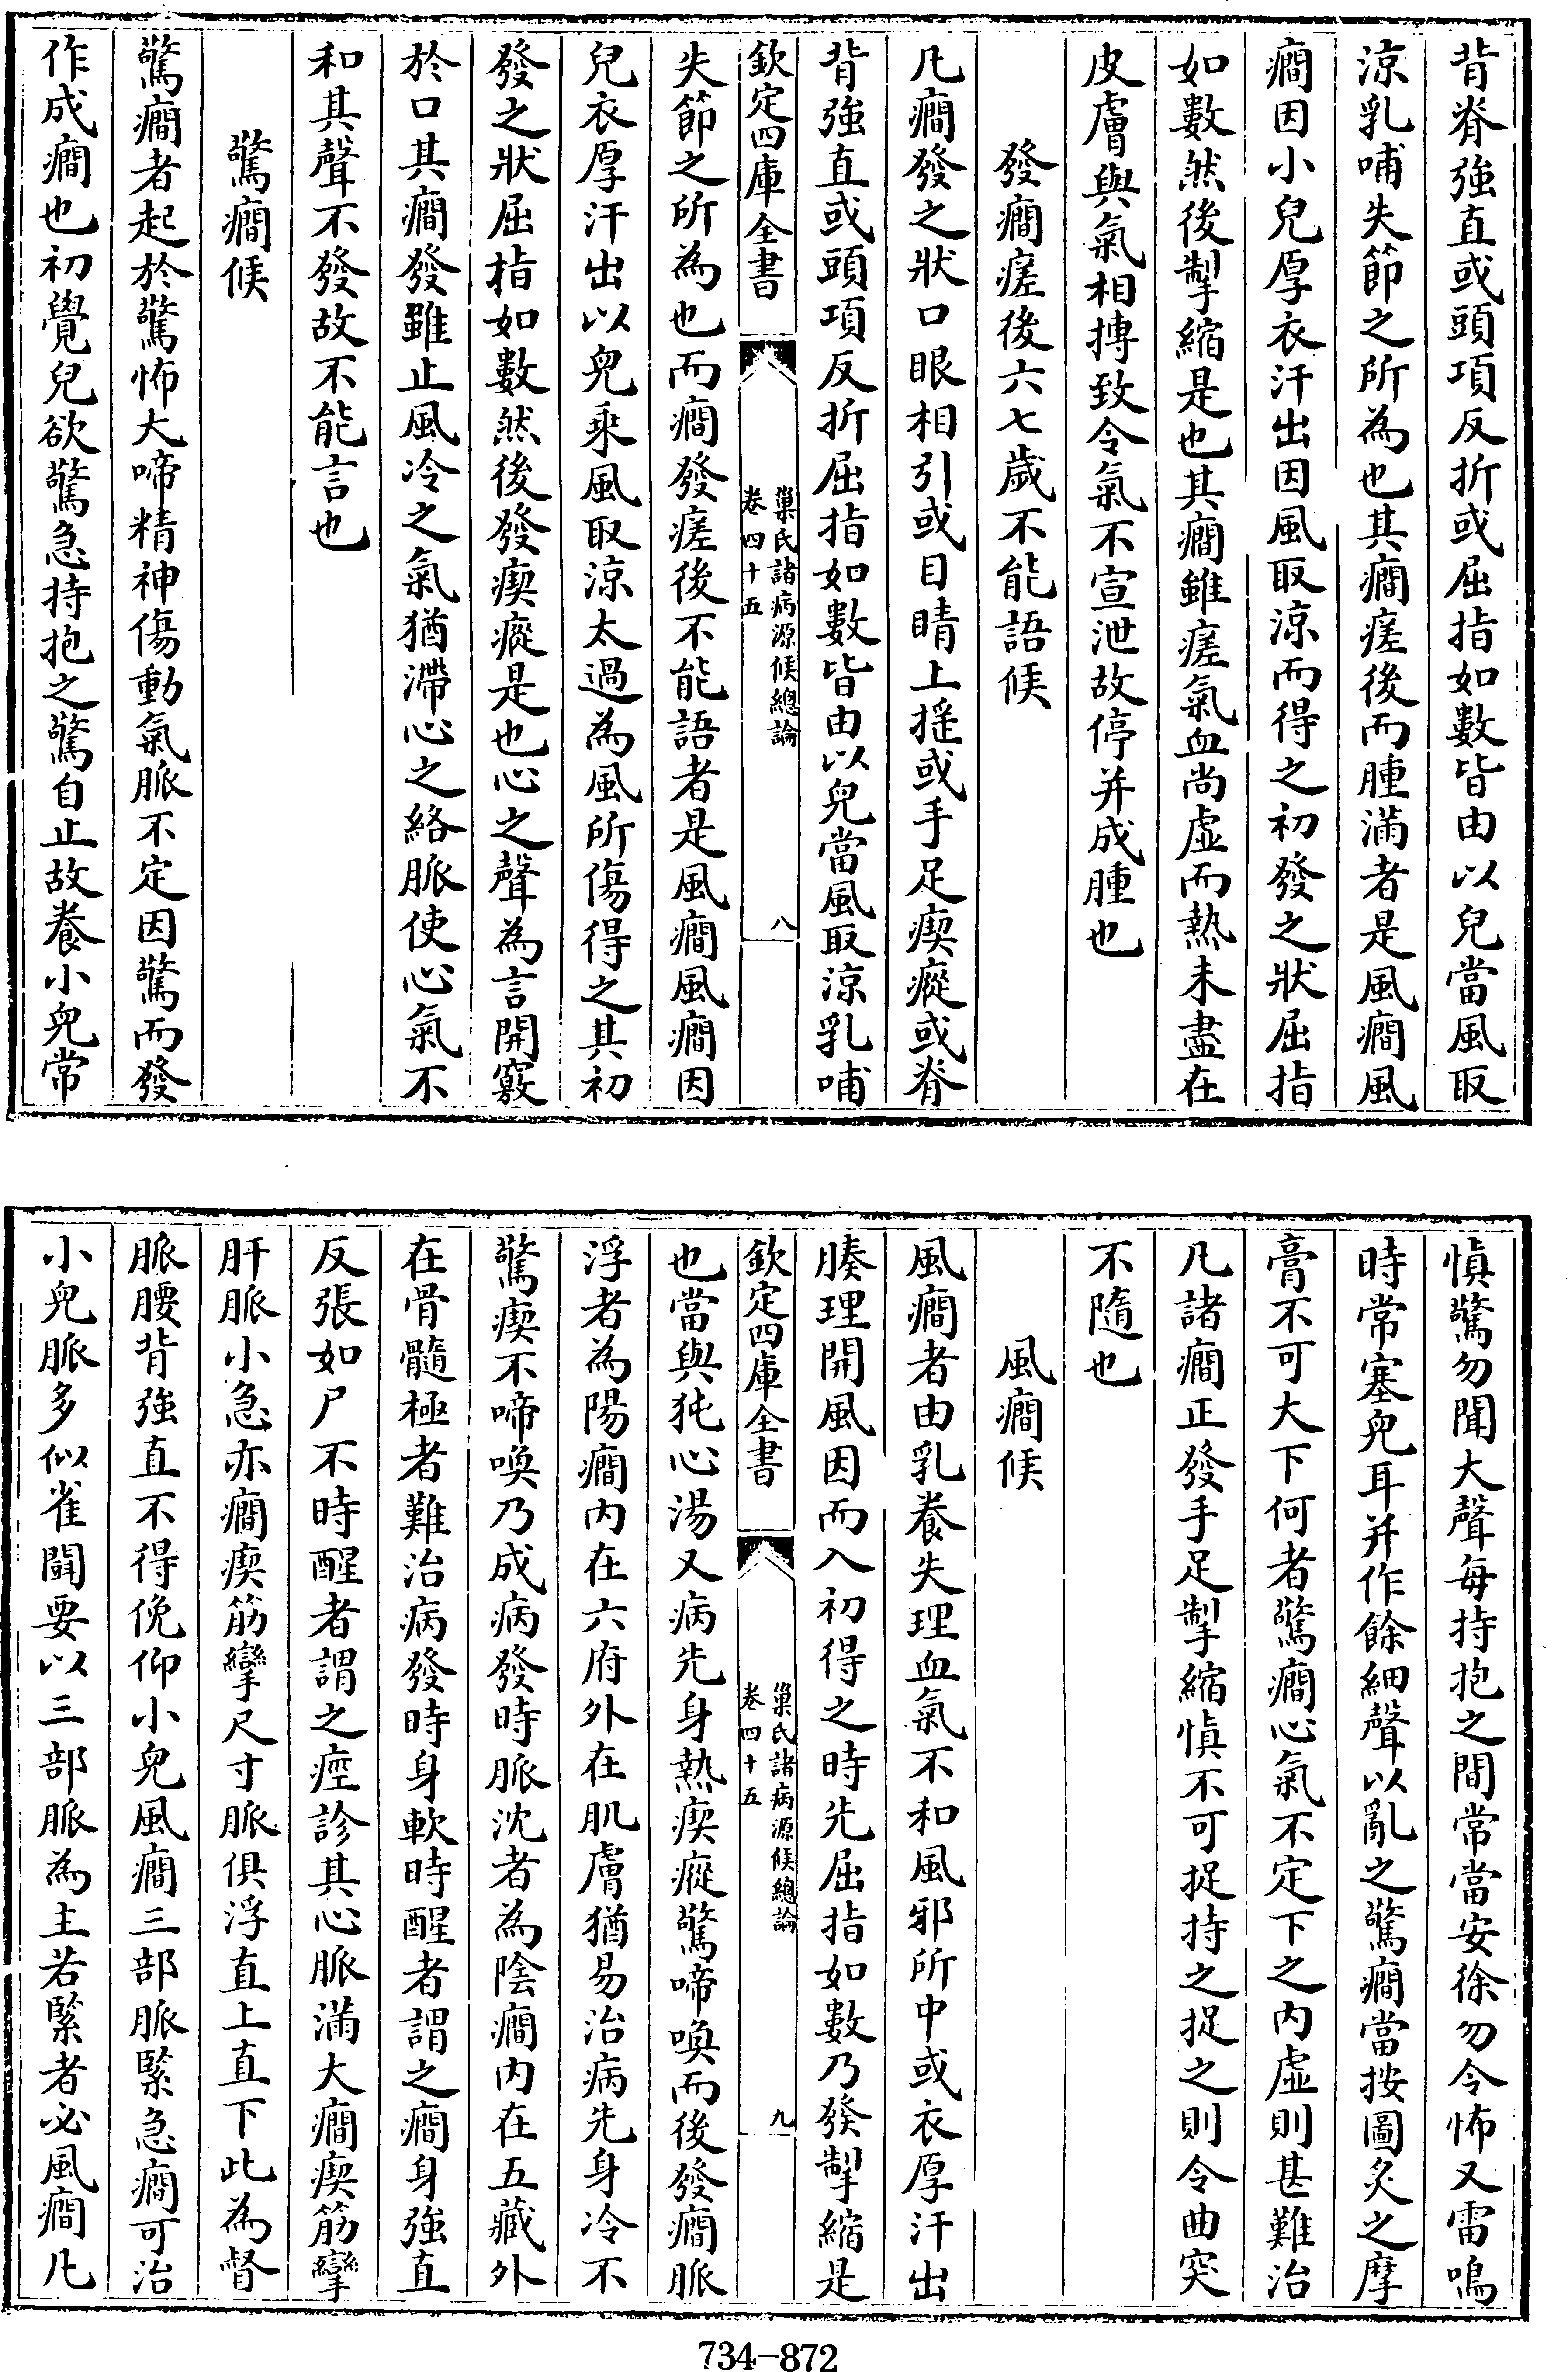 背脊強直或頭項反折或屈指如數皆由以兒當風取
涼乳哺失節之所為也其癇瘥後而腫滿者是風癇風
癇因小兒厚衣汗出因風取涼而得之初發之狀屈指
如數然後掣縮是也其癇雖瘥氣血尚虛而熱未盡在
皮膚與氣相摶致令氣不宣泄故停并成腫也
發癇瘥後六七歲不能語候
凡癇發之狀口眼相引或目睛上揺或手足瘈瘲或脊
背強直或頭項反折屈指如數皆由以兒當風取涼乳哺
欽定四庫全書
巢氏諸病源候總論
卷四十五
八
失節之所為也而癇發瘥後不能語者是風癇風癇因
兒衣厚汗出以兒乘風取涼太過為風所傷得之其初
發之狀屈指如數然後發瘈瘲是也心之聲為言開竅
於口其癇發雖止風冷之氣猶滯心之絡脈使心氣不
和其聲不發故不能言也
驚癇候
驚癇者起於驚怖大啼精神傷動氣脈不定因驚而發
作成癇也初覺兒欲驚急持抱之驚自止故養小兒常
慎驚勿聞大聲每持抱之間常當安徐勿令怖又雷鳴
時常塞兒耳并作餘細聲以亂之驚癇當按圖灸之摩
膏不可大下何者驚癇心氣不定下之內虛則甚難治
凡諸癇正發手足掣縮慎不可捉持之捉之則令曲突
不隨也
風癇候
風癇者由乳養失理血氣不和風邪所中或衣厚汗出
腠理開風因而入初得之時先屈指如數乃發掣縮是
欽定四庫全書
巢氏諸病源候總論
卷四十五
九
也當與㹠心湯又病先身熱瘈瘲驚啼喚而後發癇脈
浮者為陽癇內在六府外在肌膚猶易治病先身冷不
驚瘈不啼喚乃成病發時脈沈者為陰癇內在五藏外
在骨髓極者難治病發時身軟時醒者謂之癇身強直
反張如尸不時醒者謂之痙診其心脈滿大癇瘈筋攣
肝脈小急亦癇瘈筋攣尺寸脈俱浮直上直下此為督
脈腰背強直不得俛仰小兒風癇三部脈緊急癇可治
小兒脈多似雀鬬要以三部脈為主若緊者必風癇凡
734-872